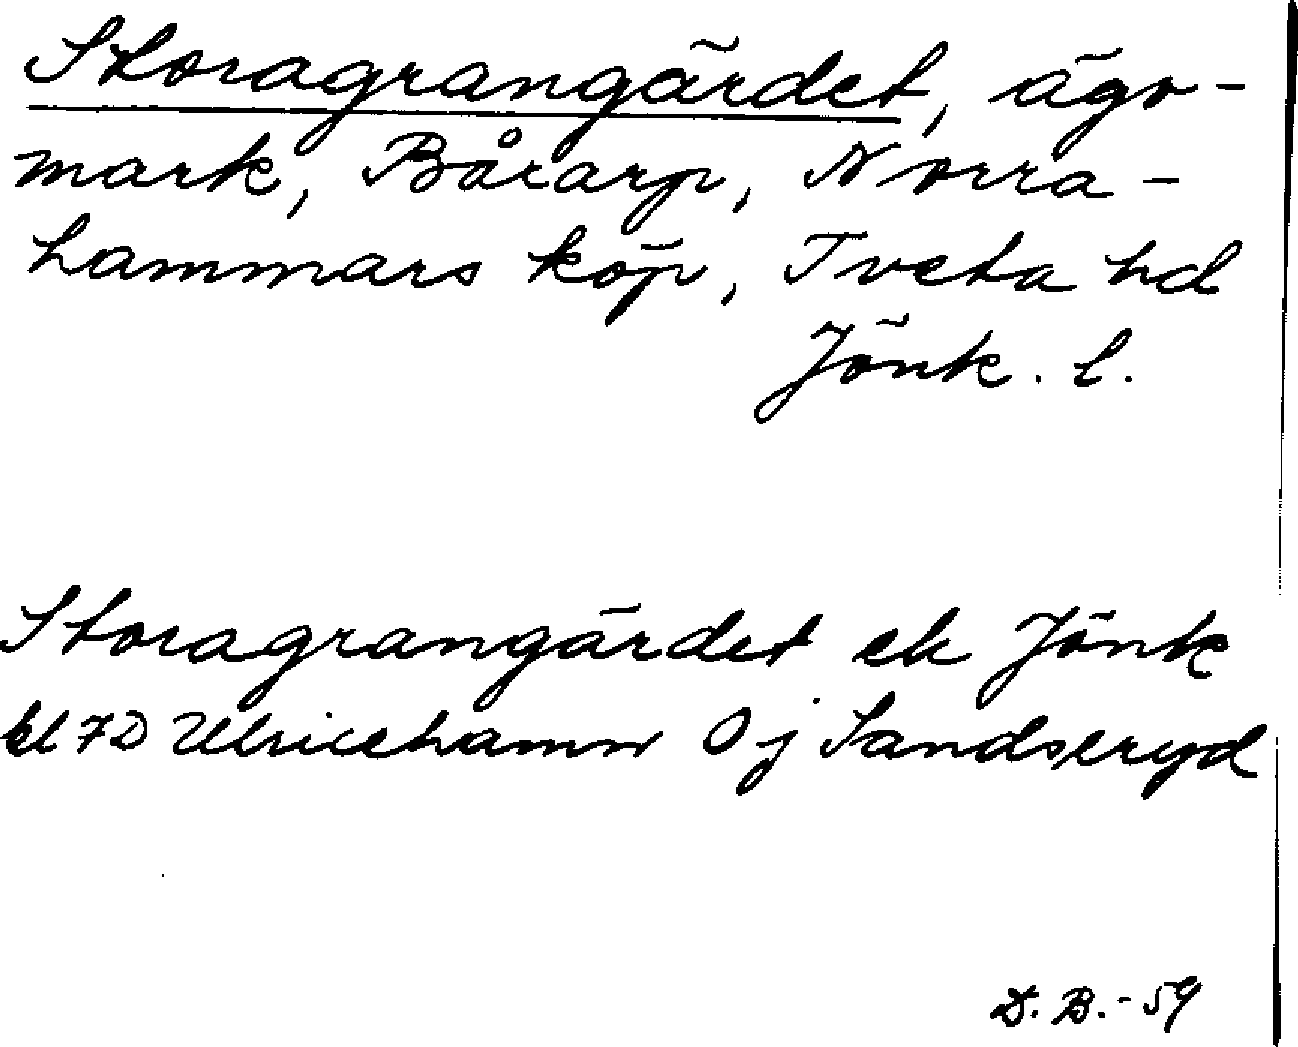 Storagrangärdet, ägo-
mark, Bårarp, Norra-
hammars köp, Tveta hd
Jönk. l.
Storagrangärdet ek Jönk
bl 7D Ulricehamn Oj Sandseryd
D.B.-59